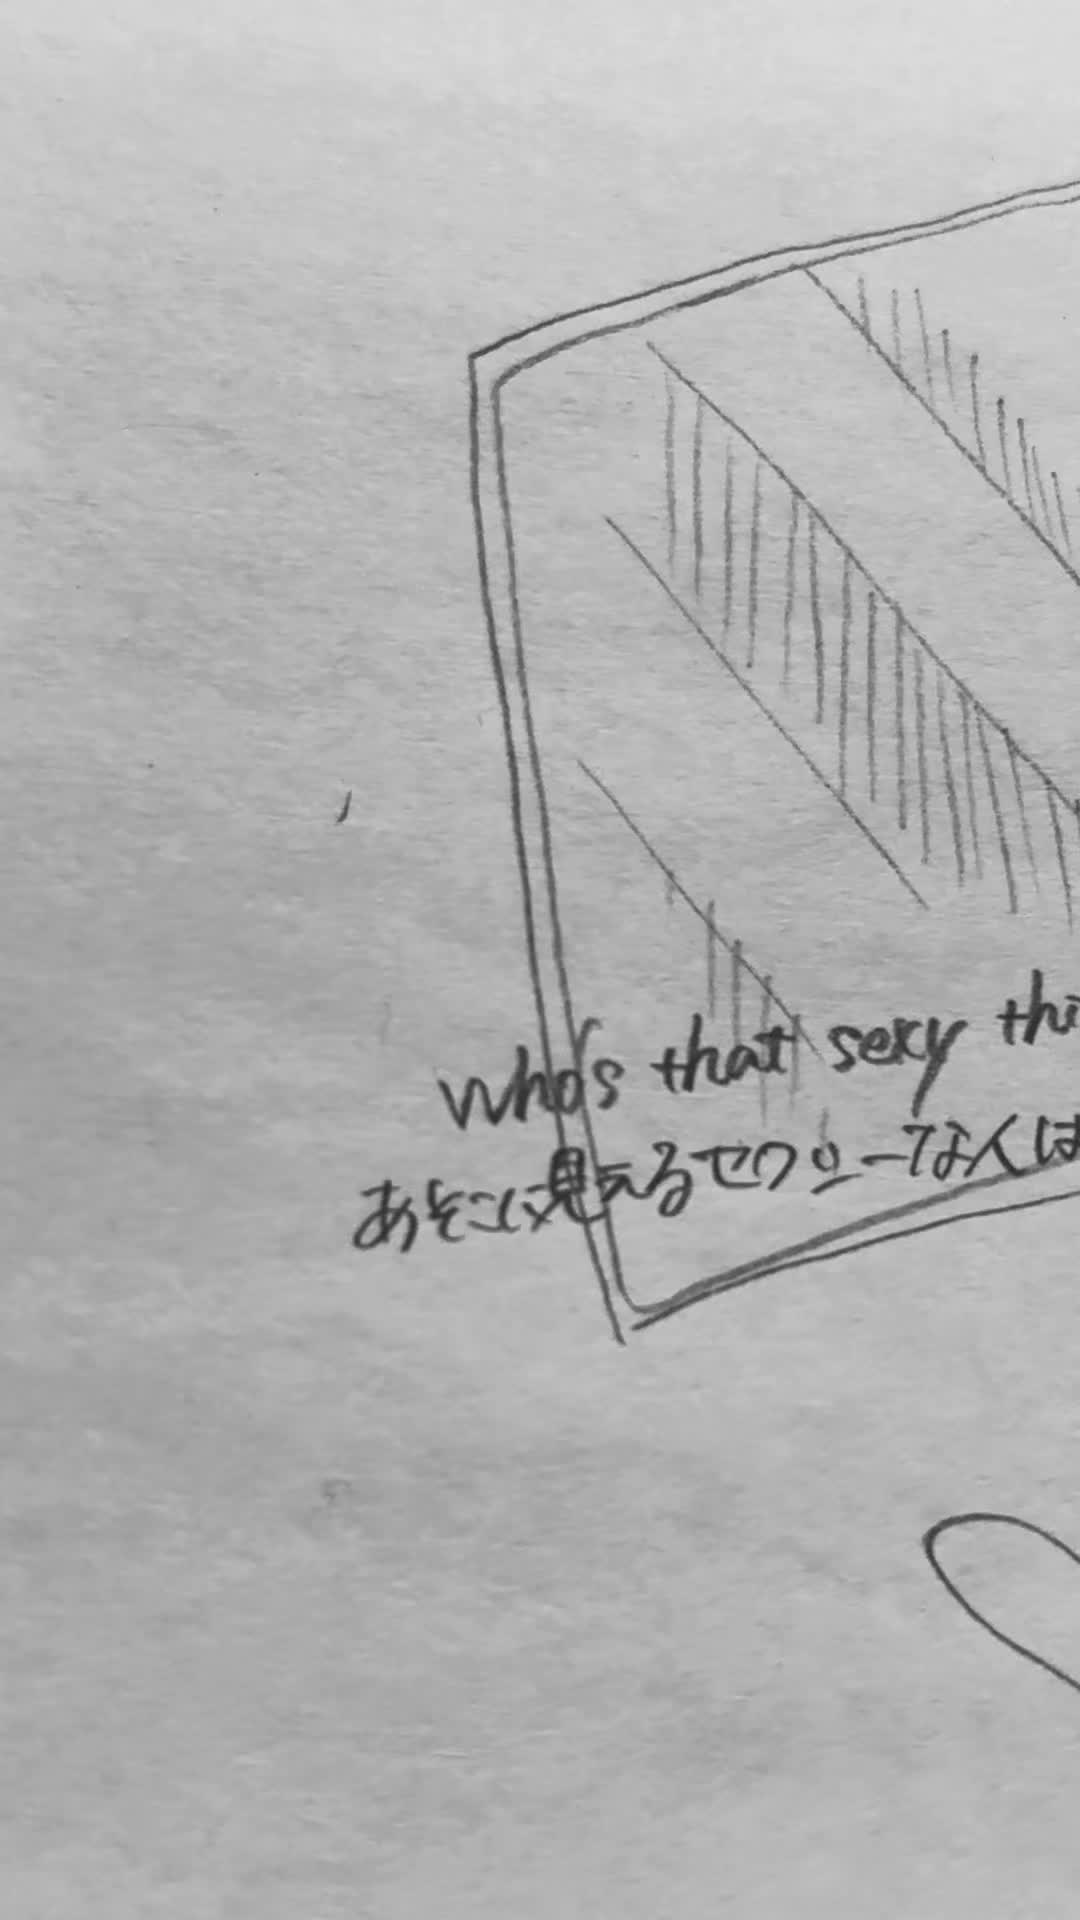 who's that sexy thi
あそこに見えるセクシーな人は